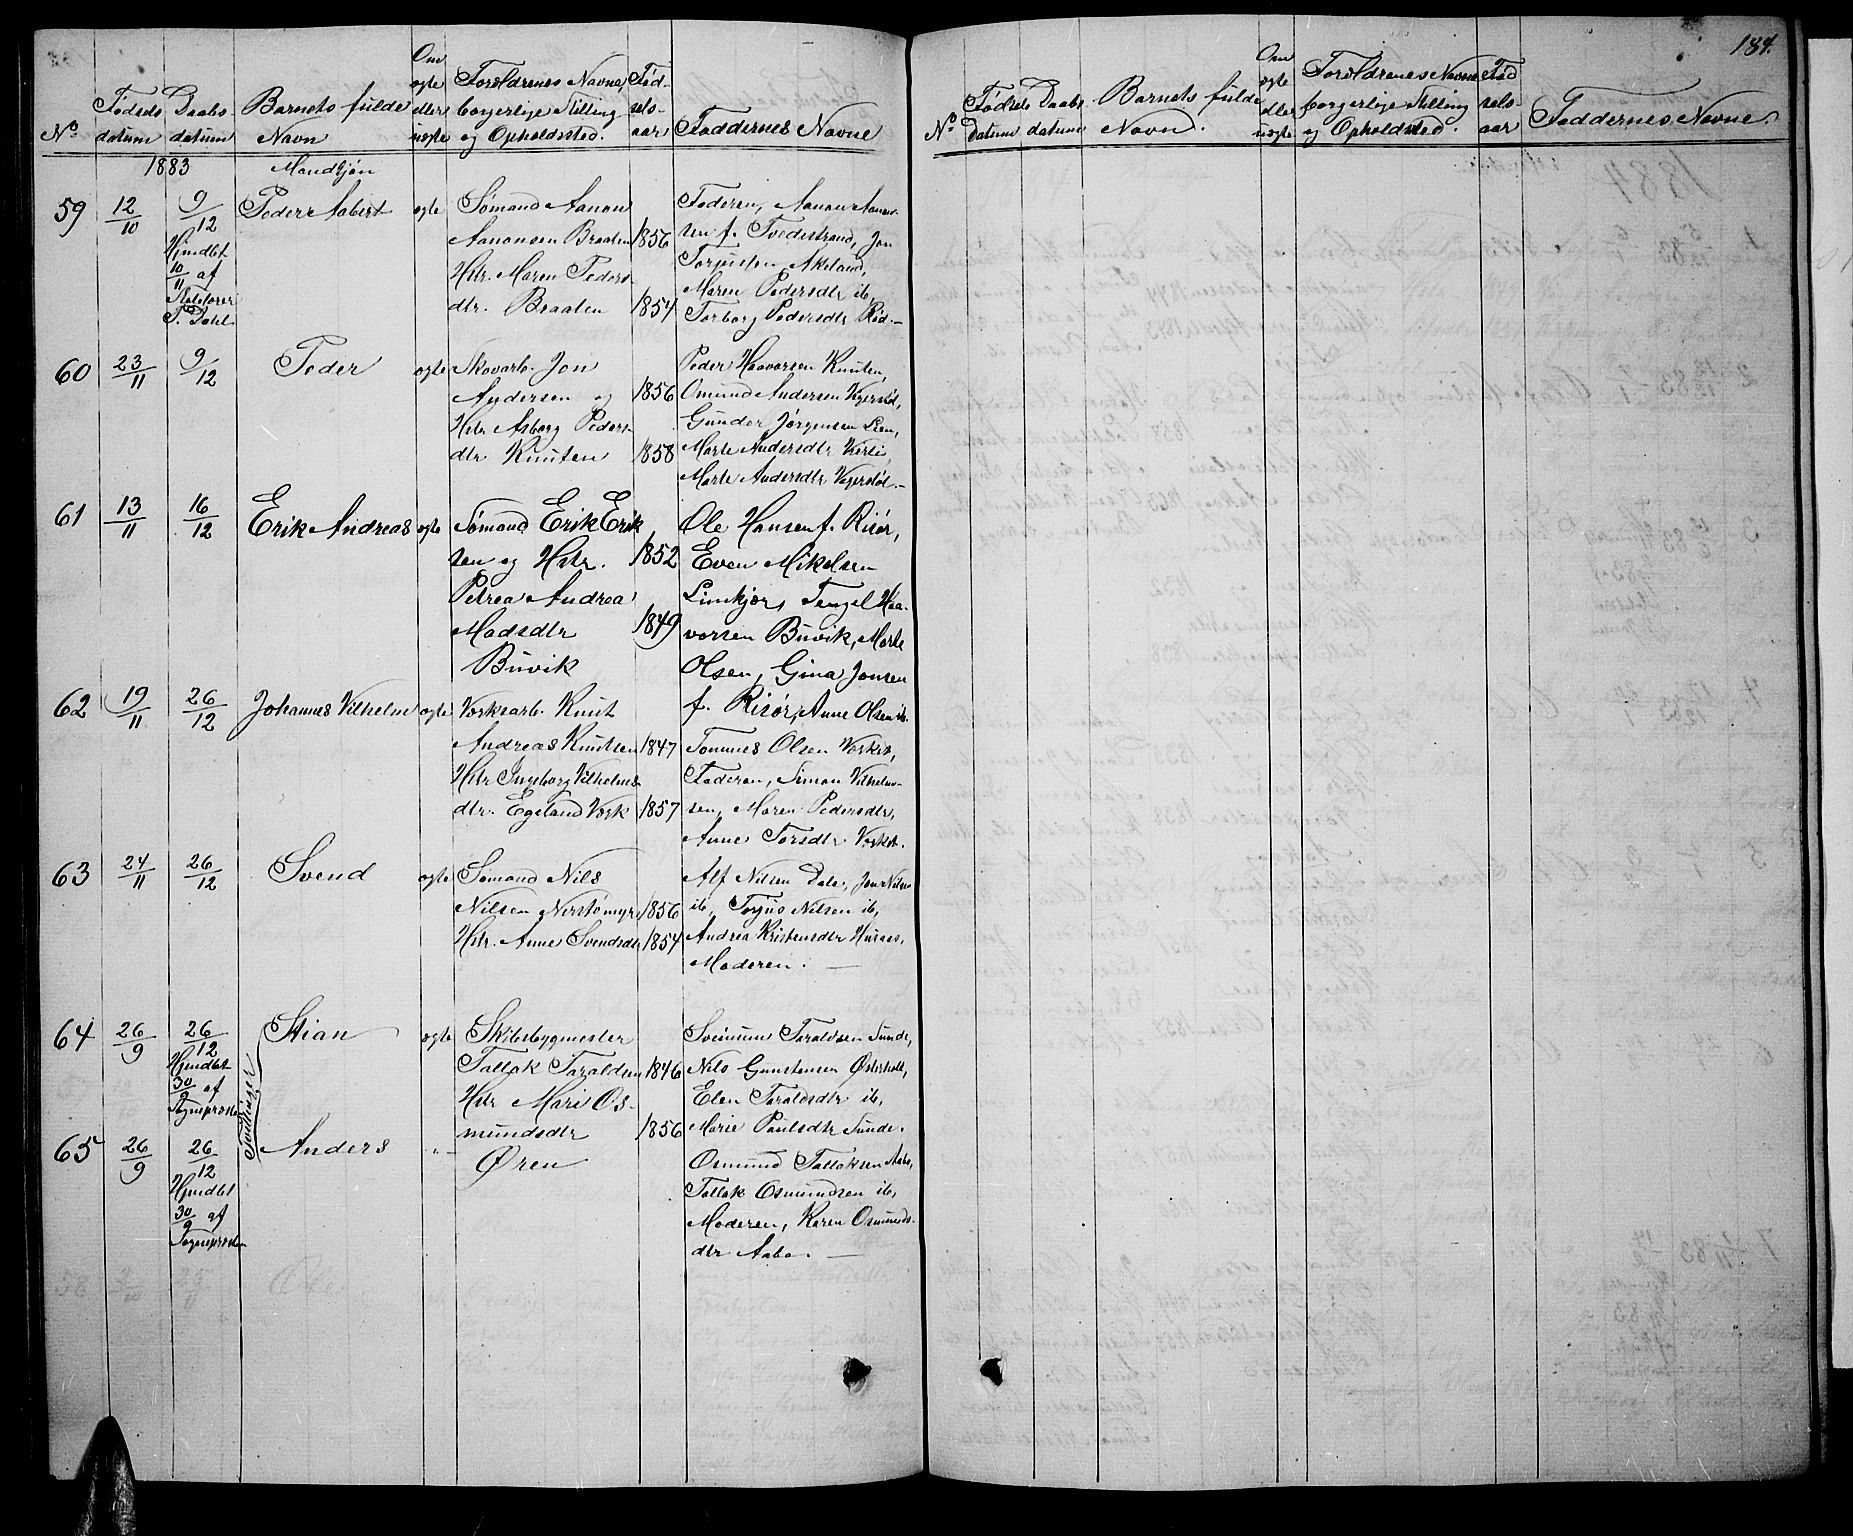 No
Fødsels datum
Daabs datum
Barnets fulde Navn
Om ægte eller uægte
Forældrenes Navne, borgerlige Stilling og Opholdssted.
Fødselsaar
Faddernes Navne
1883
Mandkjøn
59
12/10
9/12
Hjmdbt
10/11 af
P. Dahl
Peder Aabert
ægte
Sømand Aanon
Aanonsen Braaten 1856
Hstr. Maren Peders
dtr. Braaten 1854
Faderen, Aanon Aanon-
sen f. Tvedestrand, Jon
Torjussen Akeland,
Maren Pedersdtr ib,
Torborg Pedersdtr
60
23/11
9/12
Peder
ægte
Skovarb. Jon
Andersen og 1856
Hstr Asborg Peders
dtr Knuten 1858
Peder Haavorsen Knuten,
Omund Andersen
Gunder Jørgensen Lien,
Marte Andersdtr
Marte Andersdtr
61
13/11
16/12
Erik Andreas
ægte
Sømand Erik Erik
sen og Hstr. 1852
Petrea Andrea
Madsdtr 1849
Buvik
Ole Hansen f. Risør,
Even Mikelsen
Limkjær, Tengel Haa-
vorsen Buvik, Marte
Olsen, Gina Jonsen
f. Risør, Anne Olsen ib.
62
19/11
26/12
Johannes Vilhelm
ægte
Værksarb. Knut
Andreas Knutsen 1847
Hstr Ingeborg Vilhelms
dtr. Egeland Værk 1857
Tommes Olsen Værket,
Faderen, Simon Vilhelm-
sen, Maren Pedersdtr,
Anne Torsdtr Værket.
63
24/11
26/12
Svend
ægte
Sømand Nils
Nilsen Nerstømyr 1856
Hstr. Anne Svendsdtr 1854
Alf Nilsen Dale, Jon Nilsen
ib, Torjus Nilsen ib,
Andrea Kristensdtr
Moderen.
64
26/9
26/12
Hjmdbt
30/9 af
Sognepræsten
Stian
Tvillinger
ægte
Skibsbygmester
Tallak Taraldsen 1846
Hstr Mari Os-
mundsdtr 1856
Øren
Sveinum Taraldsen Sunde,
Nils Gunstensen Østerholt,
Elen Taraldsdtr ib,
Marie Paulsdtr Sunde.
65
26/9
26/12
Hjmdbt
30/9 af
Sognepræsten
Anders
"
Osmund Tallaksen Aabo,
Tallak Osmundsen ib,
Moderen, Karen Osmunds-
dtr Aabo.
184.
No
Fødsels datum
Daabs datum
Barnets fulde Navn.
Om ægte eller uægte
Forældrenes Navne borgerlige Stilling og Opholdssted.
Fødselsaar
Faddernes Navne.